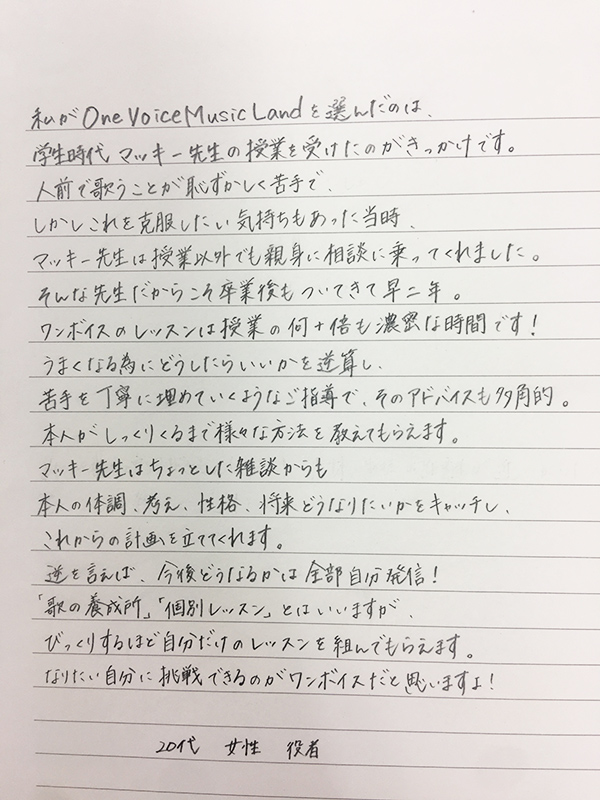 私がOne Voice Music Landを選んだのは、
学生時代 マッキー先生の授業を受けたのがきっかけです。
人前で歌うことが恥ずかしく苦手で、
しかしこれを克服したい気持ちもあった当時、
マッキー先生は授業以外でも親身に相談に乗ってくれました。
そんな先生だからこそ卒業後もついてきて早二年。
ワンボイスのレッスンは授業の何十倍も濃密な時間です!
うまくなる為にどうしたらいいかを逆算し、
苦手を丁寧に埋めていくようなご指導で、そのアドバイスも多角的。
本人がしっくりくるまで様々な方法を教えてもらえます。
マッキー先生はちょっとした雑談からも
本人の体調、考え、性格、将来どうなりたいかをキャッチし、
これからの計画を立ててくれます。
逆を言えば、今後どうなるかは全部自分発信!
「歌の養成所」「個別レッスン」とはいいますが、
びっくりするほど自分だけのレッスンを組んでもらえます。
なりたい自分に挑戦できるのがワンボイスだと思いますよ!
20代 女性 役者